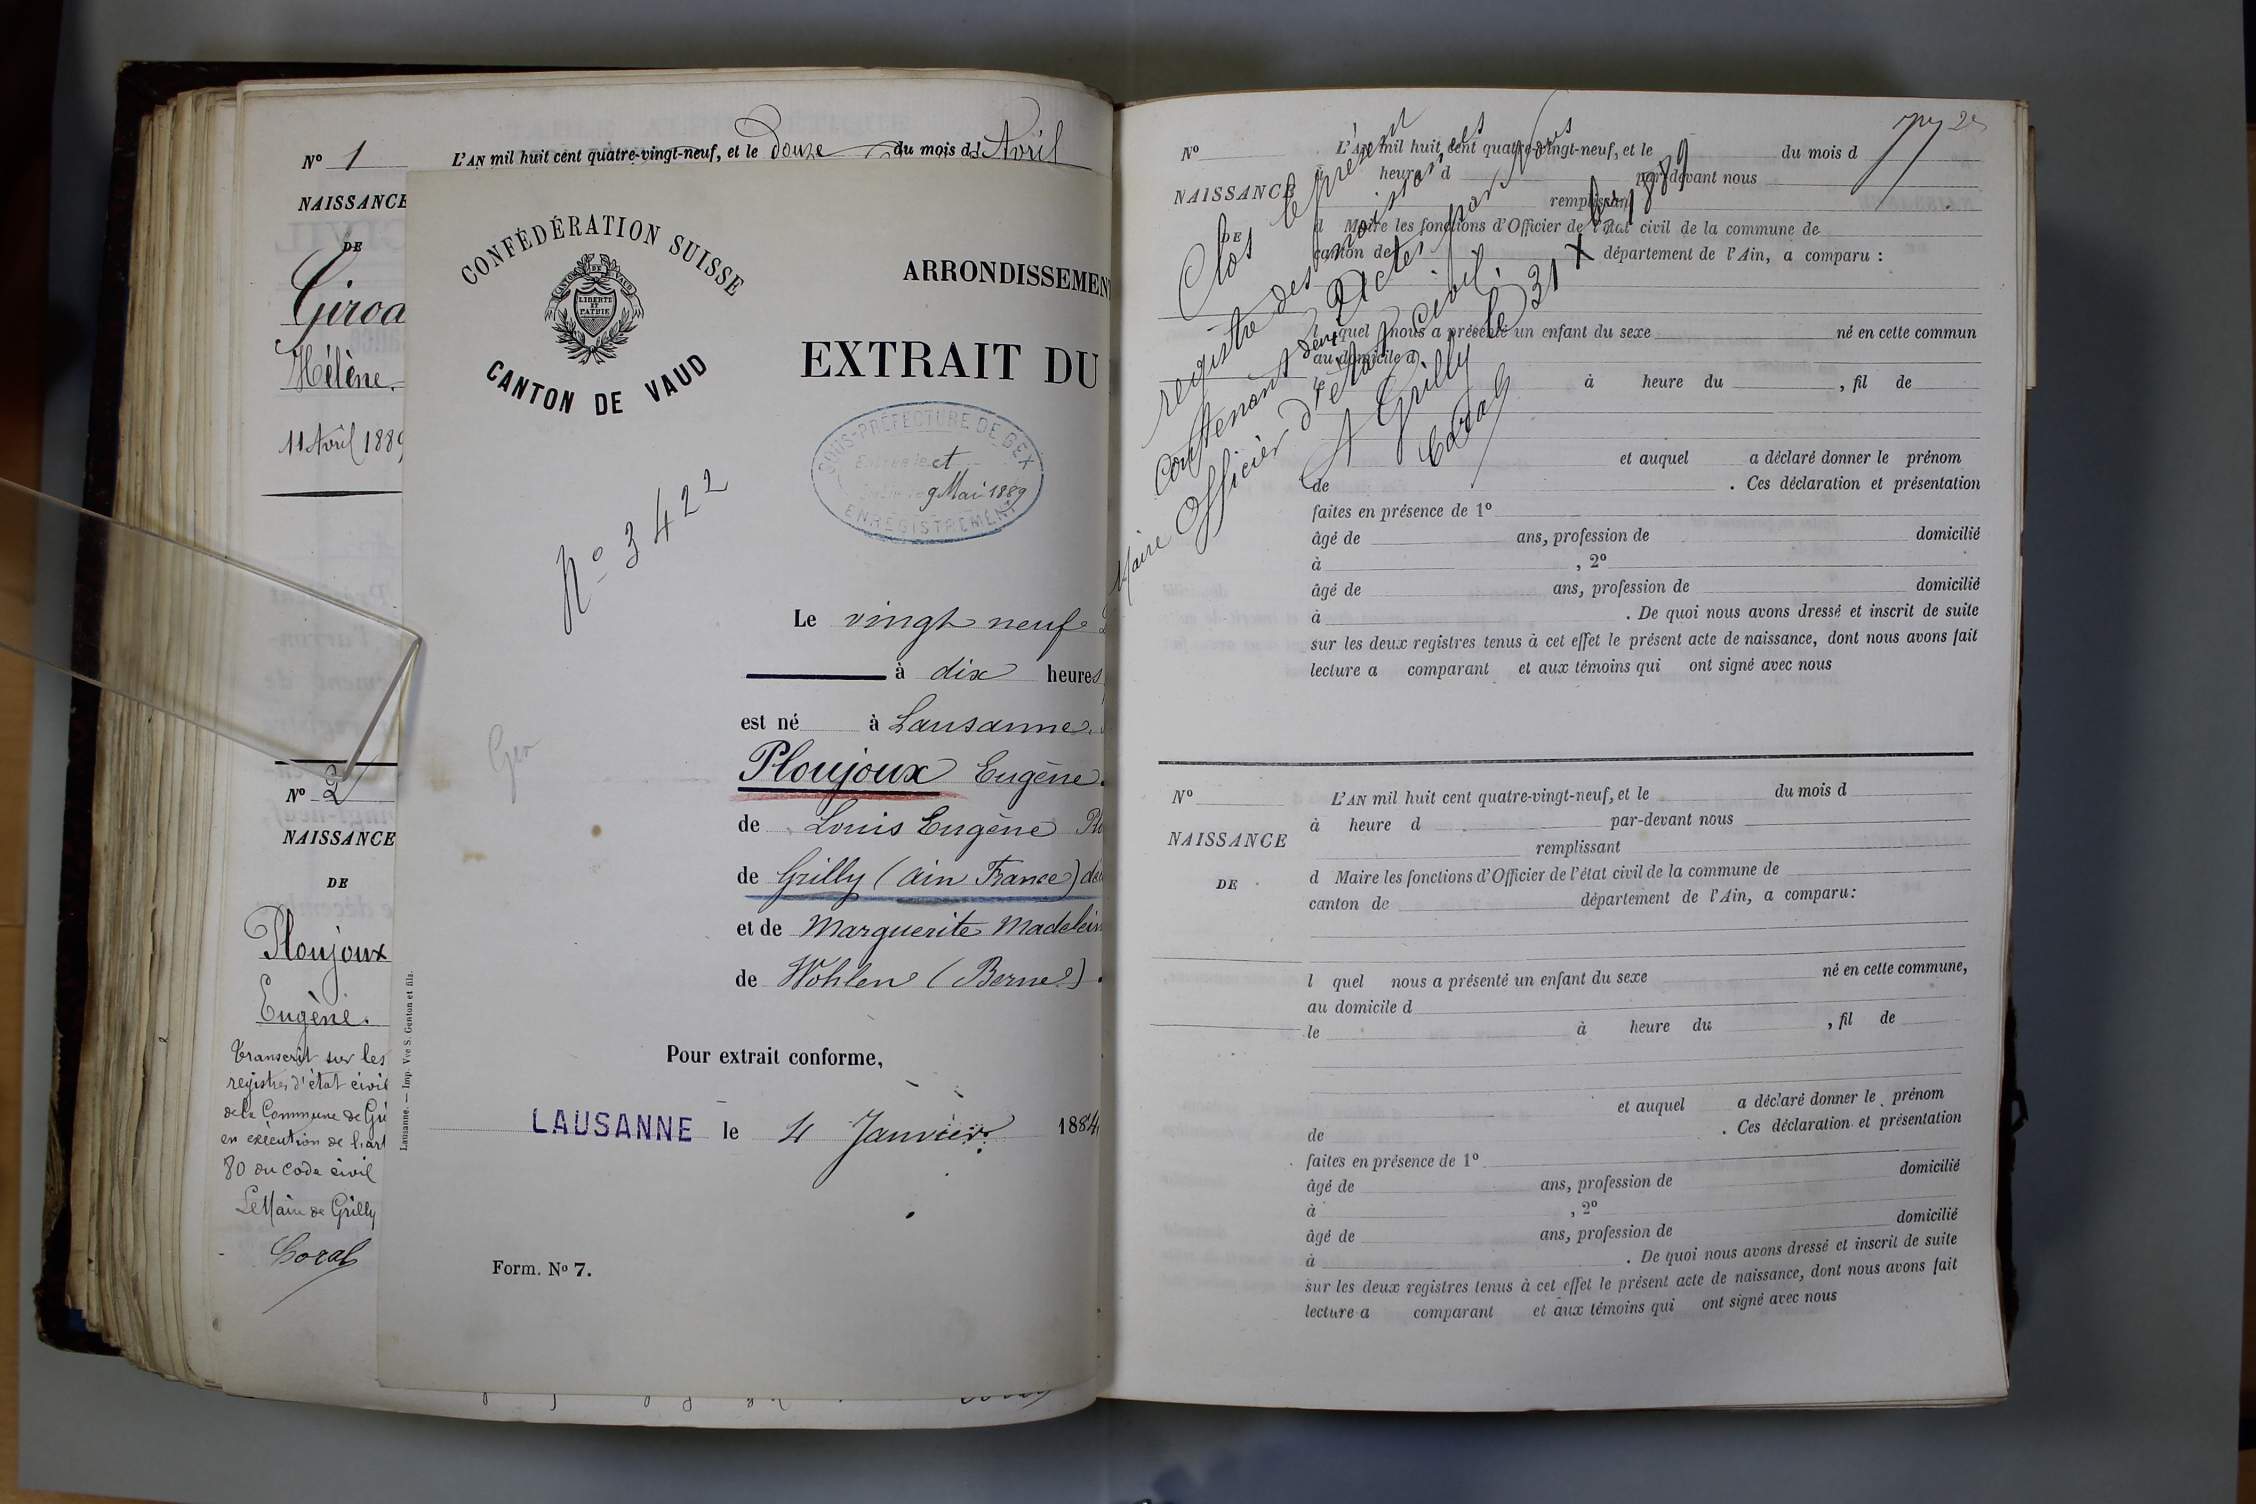 No 1
L'AN mil huit cent quatre-vingt-neuf, et le douze du mois d'Avril
NAISSANCE
DE
Girod
Hélène.
11 Avril 1889
No 2
NAISSANCE
DE
Ploujoux
Eugène.
Transcrit sur les
registres d'état civil
de la Commune de Gri
en exécution de l'art
80 du Code civil
Le Maire de Grilly
CONFÉDÉRATION SUISSE
CANTON DE VAUD
LIBERTÉ
ET
PATRIE
CANTON DE VAUD
ARRONDISSEMEN
EXTRAIT DU
SOUS-PRÉFECTURE DE GEX
9 Mai 1889
ENREGISTREMENT
No 3422
Le vingt neuf
à dix heures
est né à Lausanne.
Ploujoux Eugène.
de Louis Eugène Plo
de Grilly (Ain France) do
et de Marguerite Madelein
de Wohlen (Berne)
Pour extrait conforme,
LAUSANNE le 4 Janvier 1884
Form. No 7.
Lausanne. — Imp. Vve S. Genton et fils.
No
L'AN mil huit cent quatre-vingt-neuf, et le du mois d
heure d par-devant nous
NAISSANCE
remplissant
DE
d Maire les fonctions d'Officier de l'état civil de la commune de
canton de département de l'Ain, a comparu :
l quel nous a présenté un enfant du sexe né en cette commun
au domicile d
à heure du , fil de
et auquel a déclaré donner le prénom
de . Ces déclaration et présentation
faites en présence de 1o
âgé de ans, profession de domicilié
à , 2o
âgé de ans, profession de domicilié
à . De quoi nous avons dressé et inscrit de suite
sur les deux registres tenus à cet effet le présent acte de naissance, dont nous avons fait
lecture a comparant et aux témoins qui ont signé avec nous
Clos le présent
registre des naissances
contenant deux Actes par nous
Maire Officier d'état civil.
A Grilly le 31 Xbre 1889
No
L'AN mil huit cent quatre-vingt-neuf, et le du mois d
à heure d par-devant nous
NAISSANCE
remplissant
DE
d Maire les fonctions d'Officier de l'état civil de la commune de
canton de département de l'Ain, a comparu :
l quel nous a présenté un enfant du sexe né en cette commune,
au domicile d
le à heure du , fil de
et auquel a déclaré donner le prénom
de . Ces déclaration et présentation
faites en présence de 1o
âgé de ans, profession de domicilié
à , 2o
âgé de ans, profession de domicilié
à . De quoi nous avons dressé et inscrit de suite
sur les deux registres tenus à cet effet le présent acte de naissance, dont nous avons fait
lecture a comparant et aux témoins qui ont signé avec nous